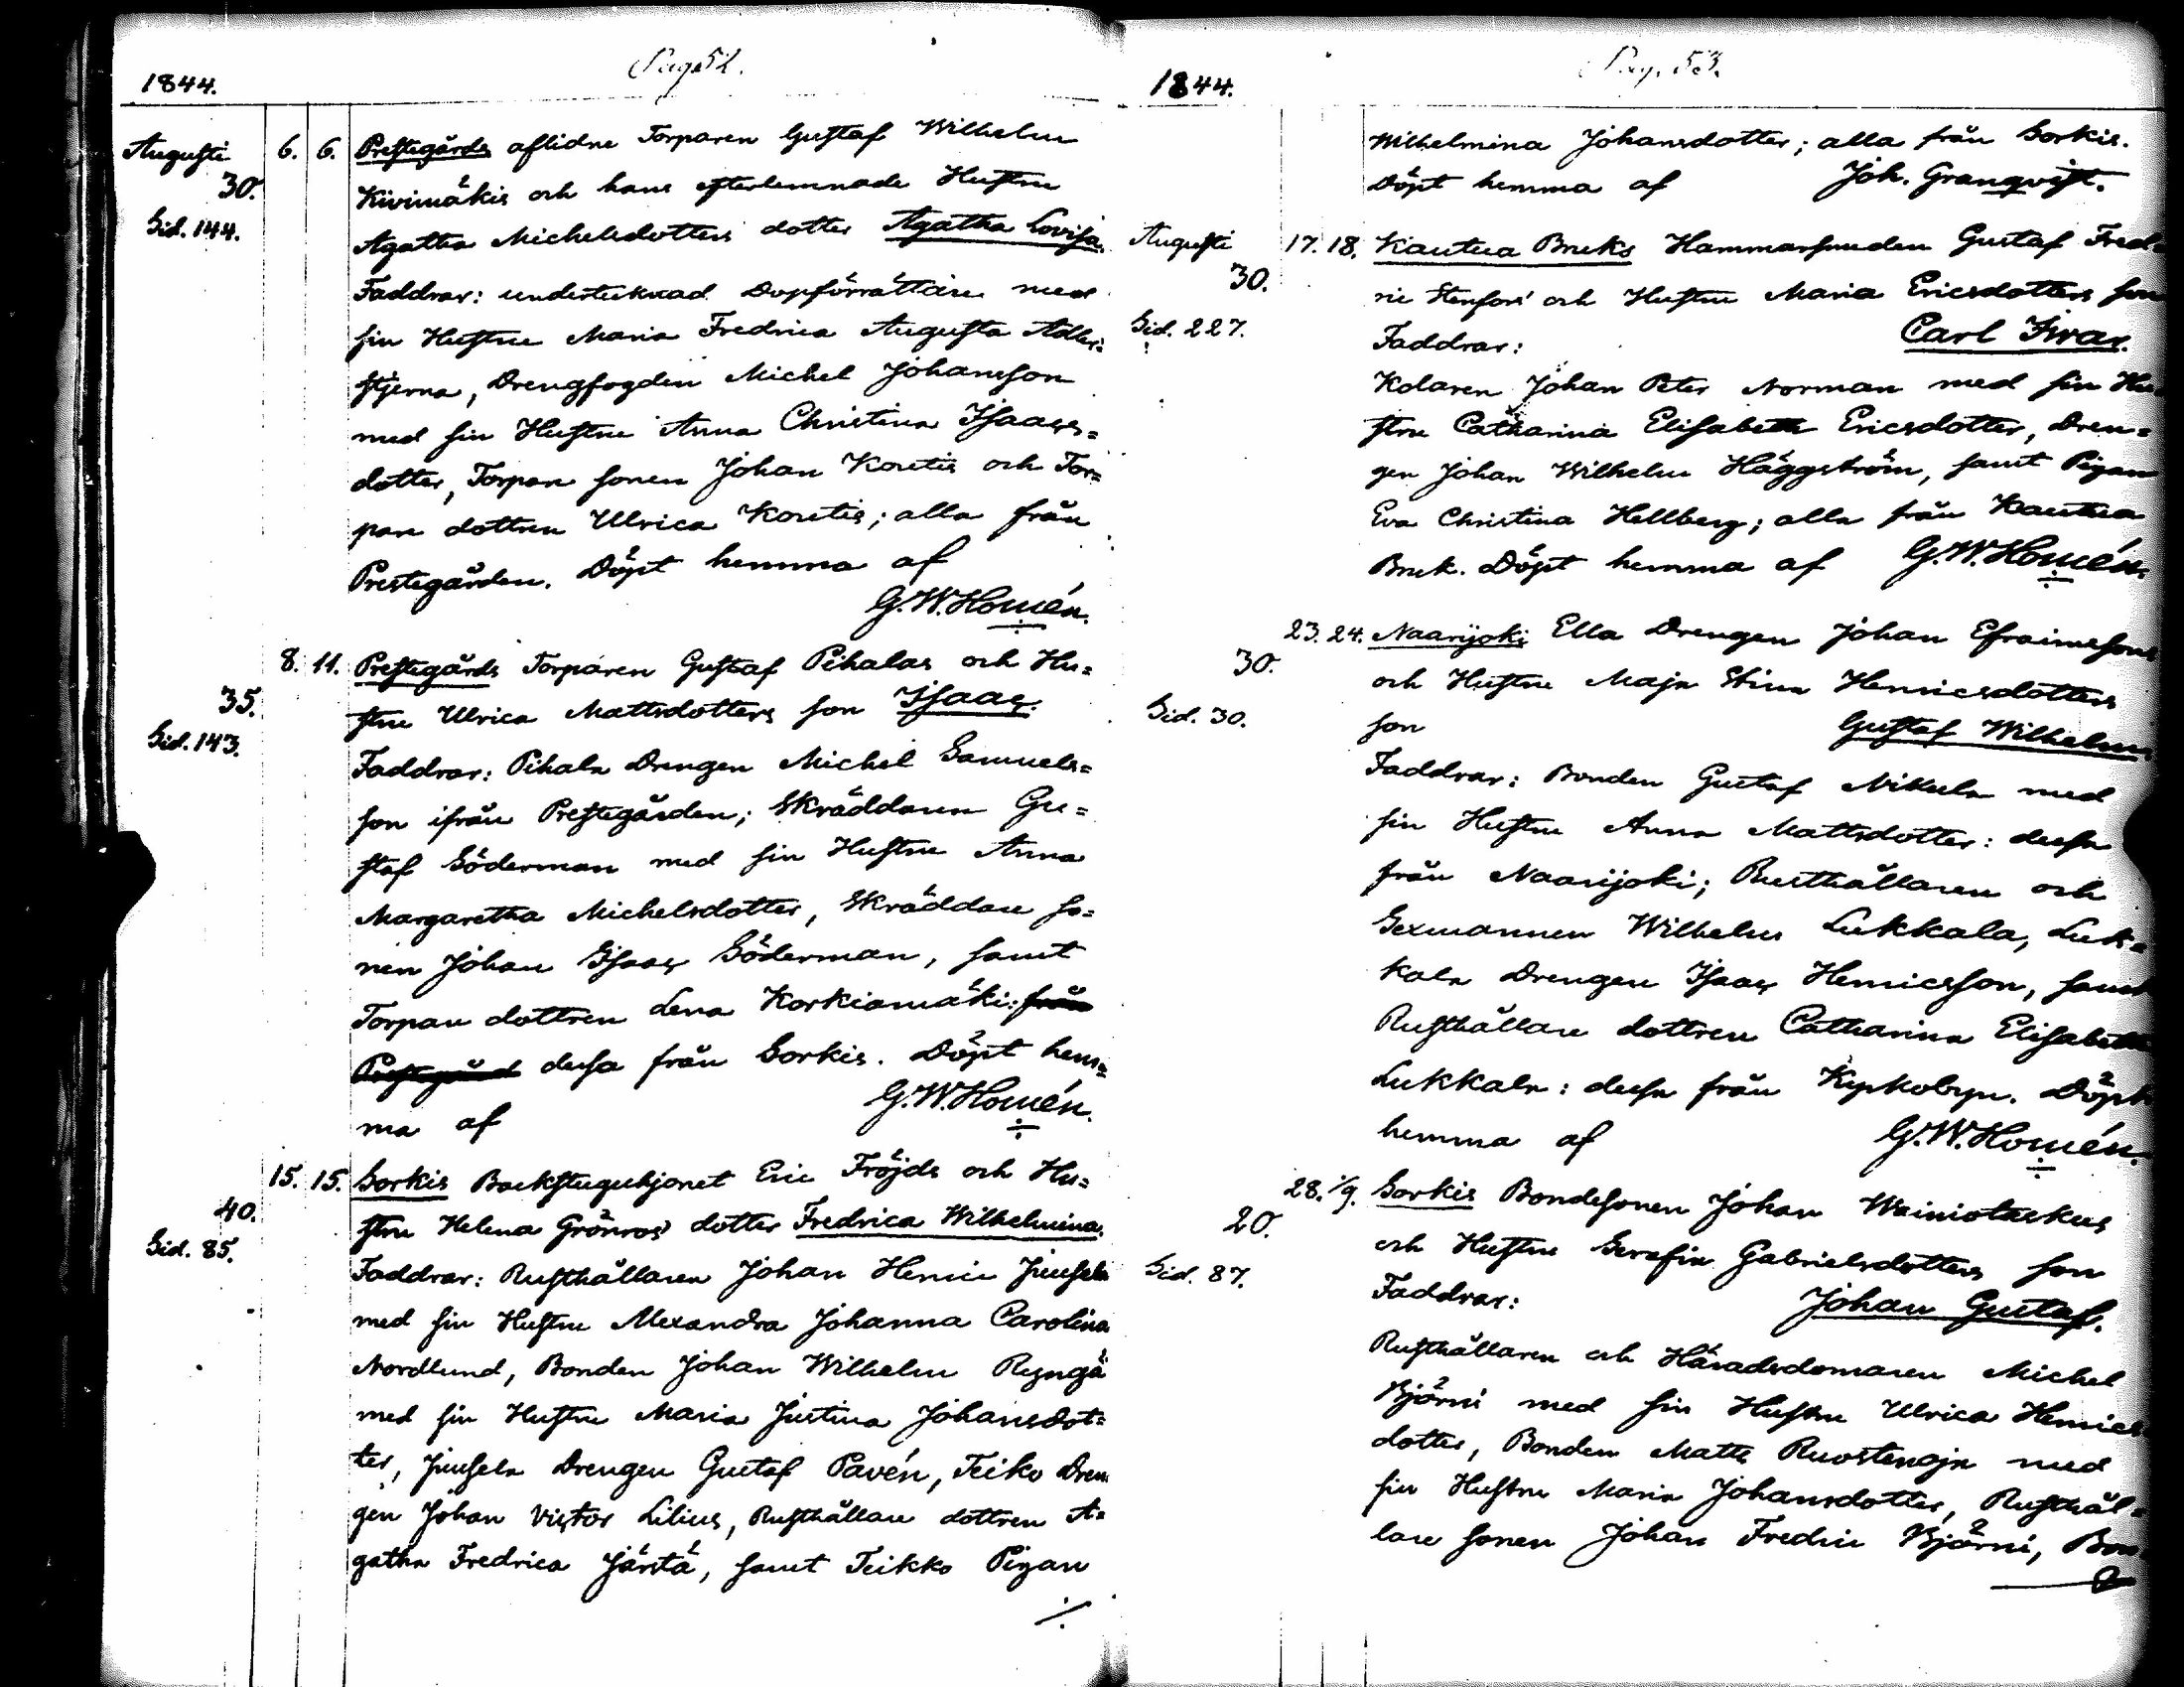 Pag. 52.
1844.
Augusti 6. 6. Prestegårds aflidne Torparen Gustaf Wilhelm
30. Kivimäkis och hans efterlemnade Hustru
Sid. 144. Agatha Michelsdotters dotter Agatha Lovisa.
Faddrar: undertecknad Dopförrättare med
sin Hustru Maria Fredrica Augusta Adler=
stjerna, Drengfogden Michel Johansson
med sin Hustru Anna Christina Isaacs=
dotter, Torpare sonen Johan Koretis och Tor=
pare dottren Ulrica Koretis; alla från
Prestegården. Döpt hemma af
G. W. Homén.
8. 11. Prestegårds Torparen Gustaf Pihalas och Hu=
35. stru Ulrica Mattsdotters son Isaac.
Sid. 143. Faddrar: Pihala Drengen Michel Samuels=
son ifrån Prestegården; Skräddaren Gu=
staf Söderman med sin Hustru Anna
Margaretha Michelsdotter, Skräddare so=
nen Johan Isaac Söderman, samt
Torpare dottren Lena Korkiamäki: från
Prestegård dessa från Sorkis. Döpt hem=
ma af G. W. Homén.
15. 15. Sorkis Backstuguhjonet Eric Fröjds och Hu=
40. stru Helena Grönros' dotter Fredrica Wilhelmina.
Sid. 85. Faddrar: Rusthållaren Johan Henric Juusela
med sin Hustru Alexandra Johanna Carolina
Nordlund, Bonden Johan Wilhelm Ryngä
med sin Hustru Maria Justina Johansdot=
ter, Juusela Drengen Gustaf Pavén, Teiko Dren
gen Johan Victor Lilius, Rusthållare dottren A=
gatha Fredrica Järitä, samt Teikko Pigan
./.
Pag. 53.
1844.
Wilhelmina Johansdotter; alla från Sorkis.
Döpt hemma af Joh. Granqvist.
Augusti 17. 18. Kautua Bruks Hammarsmeden Gustaf Fred=
30. ric Stenfors' och Hustru Maria Ericsdotters son
Sid. 227. Faddrar: Carl Ivar.
Kolaren Johan Peter Norman med sin Hu=
stru Catharina Elisabeth Ericsdotter, Dren=
gen Johan Wilhelm Häggström, samt Pigan
Eva Christina Hellberg; alla från Kautua
Bruk. Döpt hemma af G. W. Homén.
23. 24. Naarijoki Ella Drengen Johan Efraimssons
30. och Hustru Maja Stina Henricsdotters
Sid. 30. son Gustaf Wilhelm.
Faddrar: Bonden Gustaf Nikula med
sin Hustru Anna Mattsdotter: dessa
från Naarijoki; Rusthållaren och
Sexmannen Wilhelm Lukkala, Luk=
kala Drengen Isaac Henricsson, samt
Rusthållare dottren Catharina Elisabeth
Lukkala: dessa från Kepkobyn. Döpt
hemma af G. W. Homén.
28. 1/9. Sorkis Bondesonen Johan Wainiotaekus
20. och Hustru Serafia Gabrielsdotters son
Sid. 87. Faddrar: Johan Gustaf.
Rusthållaren och Häradsdomaren Michel
Björni med sin Hustru Ulrica Henrics
dotter, Bonden Matts Ruostenoja med
sin Hustru Maria Johansdotter, Rusthål=
lare sonen Johan Fredric Björni, Bon